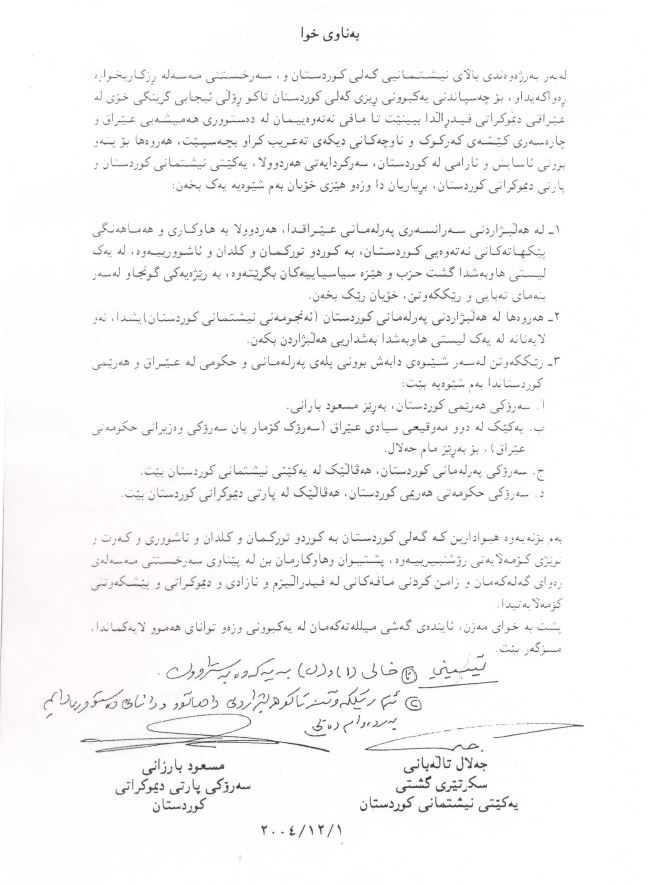 بەناوی خوا
لەبەر بەرژەوەندی باڵای نیشتمانیی گەلی کوردستان و، سەرخستنی مەسەلە ڕزگاریخوازە
ڕەواکەیدا و، بۆ چەسپاندنی یەکبوونی ڕیزی گەلی کوردستان تاکو ڕۆڵی ئیجابی گرینگی خۆی لە
عێراقی دیموکراتی فیدراڵدا ببینێت تا مافی نەتەوەییمان لە دەستووری هەمیشەیی عێراق و
چارەسەری کێشەی کەرکوک و ناوچەکانی دیکەی تەعریب کراو بچەسپێت، هەروەها بۆ پتەو
بوونی ئاسایش و ئارامی لە کوردستان، سەرکردایەتی هەردوولا، یەکێتی نیشتمانی کوردستان و
پارتی دیموکراتی کوردستان، بڕیاریان دا وزەو هێزی خۆیان بەم شێوەیە یەک بخەن:
١ـ لە هەڵبژاردنی سەرانسەری پەرلەمانی عێراقدا، هەردوولا بە هاوکاری و هەماهەنگی
پێکهاتەکانی نەتەوەیی کوردستان، بە کوردو تورکمان و کلدان و ئاشوورییەوە، لە یەک
لیستی هاوبەشدا گشت حزب و هێزە سیاسیاییەکان بگرێتەوە، بە رێژەیەکی گونجاو لەسەر
بنەمای تەبایی و رێککەوتن، خۆیان رێک بخەن.
٢ـ هەروەها لە هەڵبژاردنی پەرلەمانی کوردستان (ئەنجومەنی نیشتمانی کوردستان) یشدا، ئەو
لایەنانە لە یەک لیستی هاوبەشدا بەشداریی هەڵبژاردن بکەن.
٣ـ رێککەوتن لەسەر شێوەی دابەش بوونی پلەی پەرلەمانی و حکومی لە عێراق و هەرێمی
کوردستاندا بەم شێوەیە بێت:
ا. سەرۆکی هەرێمی کوردستان، بەڕێز مسعود بارانی.
ب. یەکێک لە دوو مەوقیعی سیادی عێراق (سەرۆک کۆمار یان سەرۆکی وەزیرانی حکومەتی
عێراق)، بۆ بەڕێز مام جەلال.
ج. سەرۆکی پەرلەمانی کوردستان، هەڤاڵێک لە یەکێتی نیشتمانی کوردستان بێت.
د. سەرۆکی حکومەتی هەرێمی کوردستان، هەڤاڵێک لە پارتی دیموکراتی کوردستان بێت.
بەم بۆنەیەوە هیوادارین کە گەلی کوردستان بە کوردو تورکمان و کلدان و ئاشووری و کەرت و
توێژی کۆمەڵایەتی رۆشنبیرییەوە، پشتیوان وهاوکارمان بن لە پێناوی سەرخستنی مەسەلەی
رەوای گەلەکەمان و زامن کردنی مافەکانی لە فیدرالیزم و ئازادی و دیموکراتی و پێشکەوتنی
کۆمەڵایەتیدا.
پشت بە خوای مەزن، ئایندەی گەشی میللەتەکەمان لە یەکبوونی وزەو توانای هەموو لایەکماندا،
مسۆگەر بێت.
تێبینی ① خالی (١) و (٢) بە یەکەوە بەستراوون
② ئەم رێککەوتنە تاکو هەڵبژاردنی داهاتوو و دانانی دەستووری دایم
بەردەوام دەبێ
جەلال تاڵەبانی
سکرتێری گشتی
یەکێتی نیشتمانی کوردستان
مسعود بارزانی
سەرۆکی پارتی دیموکراتی
کوردستان
٢٠٠٤/١٢/١